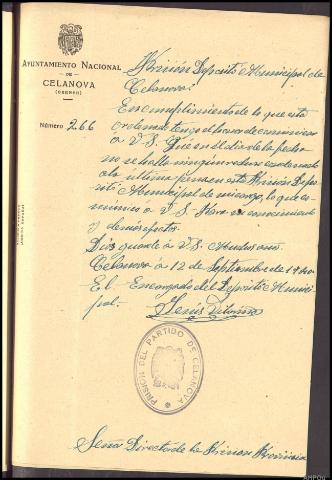 AYUNTAMIENTO NACIONAL
DE
CELANOVA
(ORENSE)
Número 266
Prisión Deposito Municipal de
Celanova:
En cumplimiento de lo que está
ordenado tengo el honor de comunicar
a V.S. Que en el dia de la fecha
no se halla ningún recluso condenado
a la última pena en esta Prisión Depo-
sito Municipal de mi cargo, lo que co-
munico á V.S. Para su conocimiento
y demás efectos.
Dios guarde á V.S. Muchos años.
Celanova á 12 de Septiembre de 1940
El Encargado del Depósito Munici-
pal.
Jesús
PRISION DEL PARTIDO DE CELANOVA
Señor Director de la Prision Provincial
AHPOu